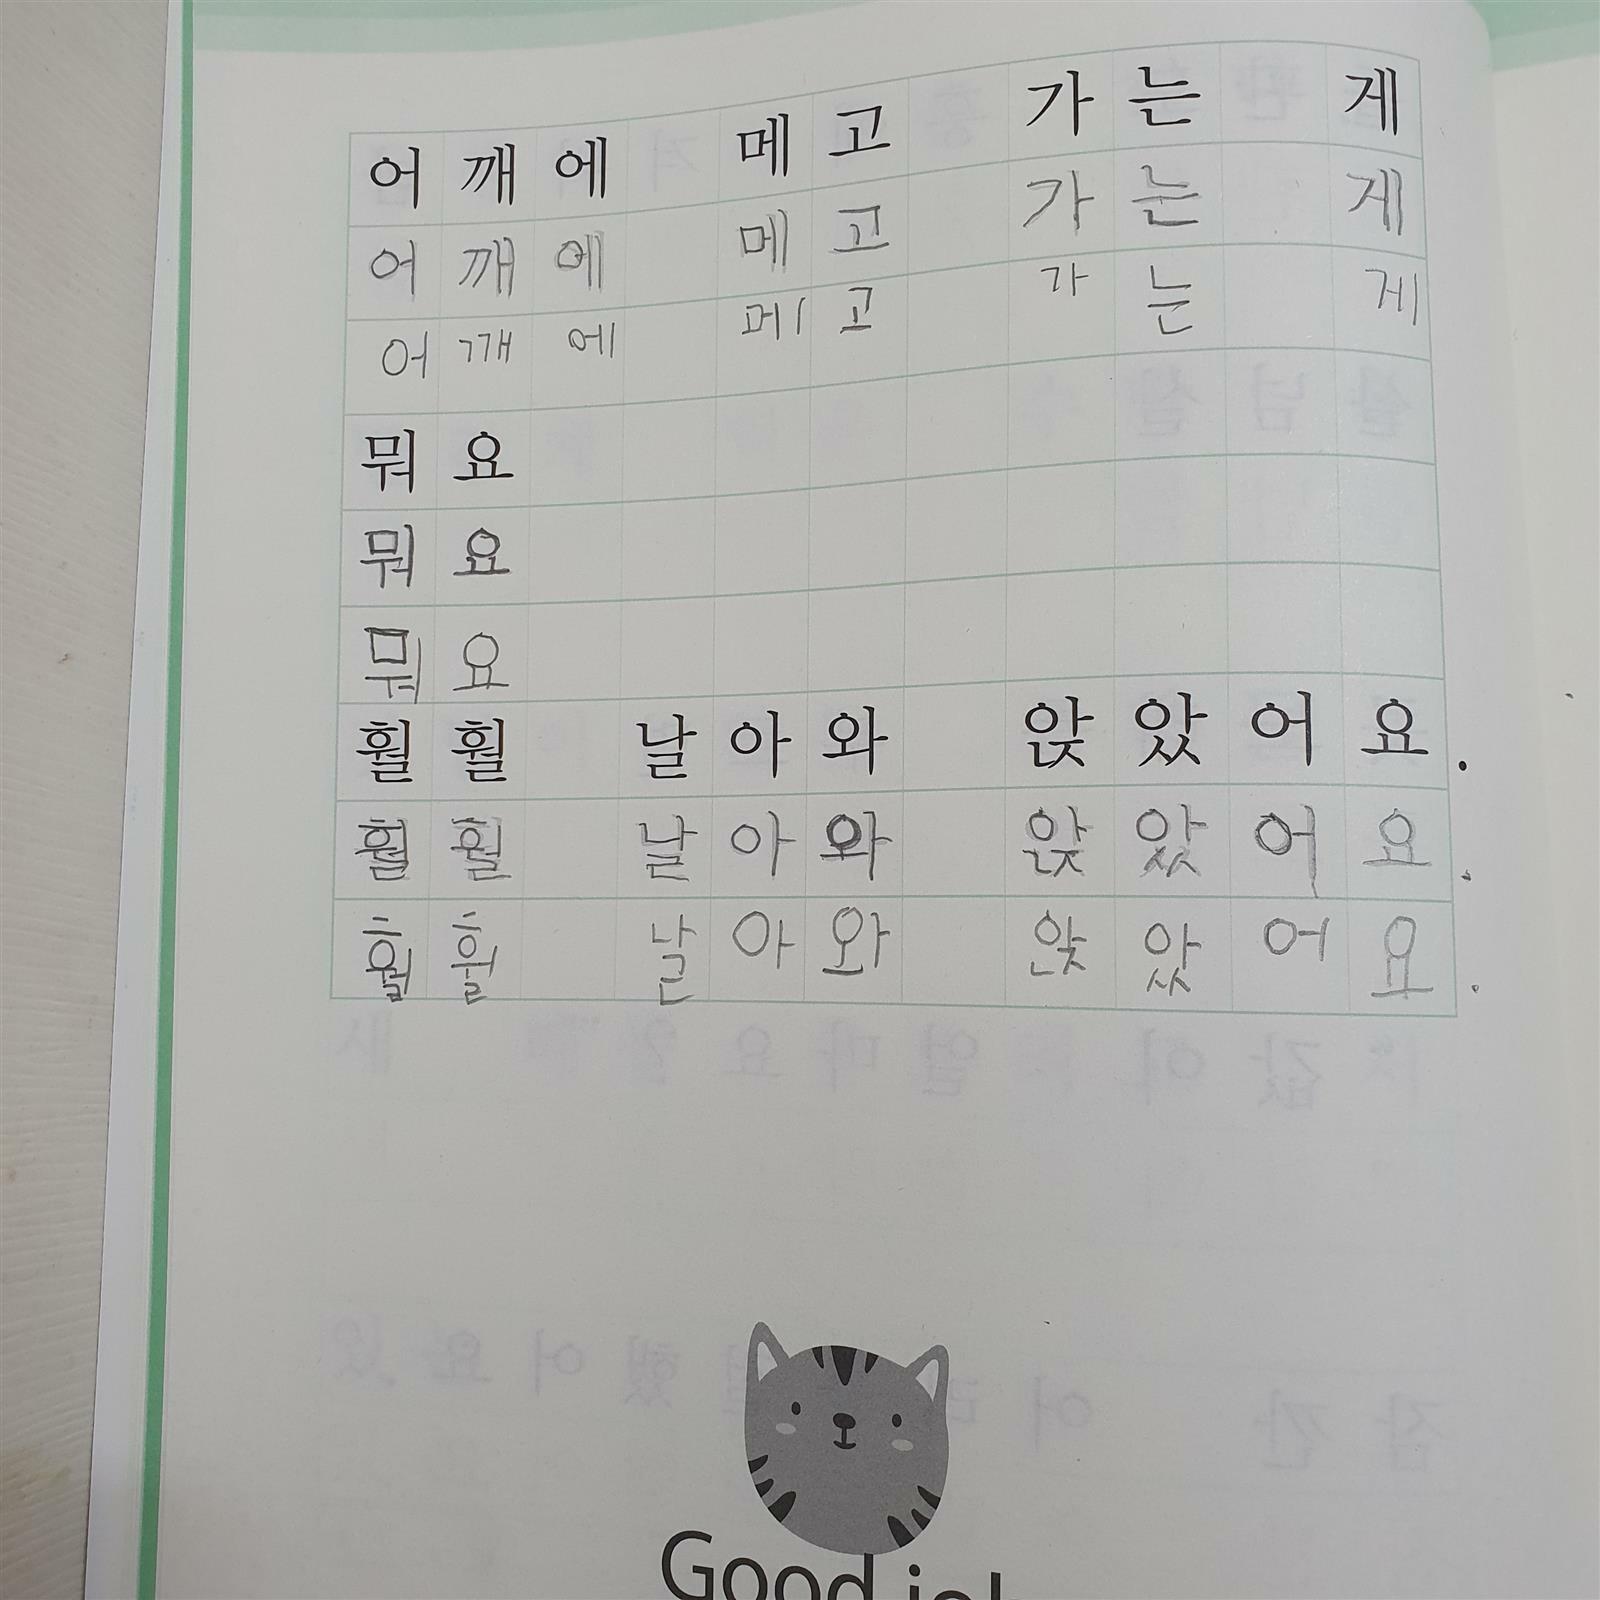 어깨에 메고 가는 게
어깨에 메고 가는 게
어깨에 메고 가는 게
뭐요
뭐요
뭐요
훨훨 날아와 앉았어요.
훨훨 날아와 앉았어요.
훨훨 날아와 앉았어요.
Good